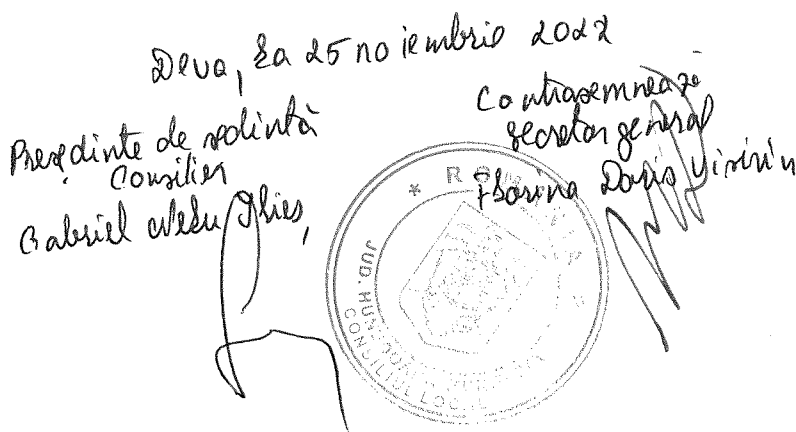 Deva, la 25 noiembrie 2022
Președinte de ședință
Consilier
Gabriel Nelu Ilieș,
Contrasemnează
secretar general
Florina Doris Visirin
* ROMÂNIA *
JUD. HUNEDOARA
CONSILIUL LOCAL